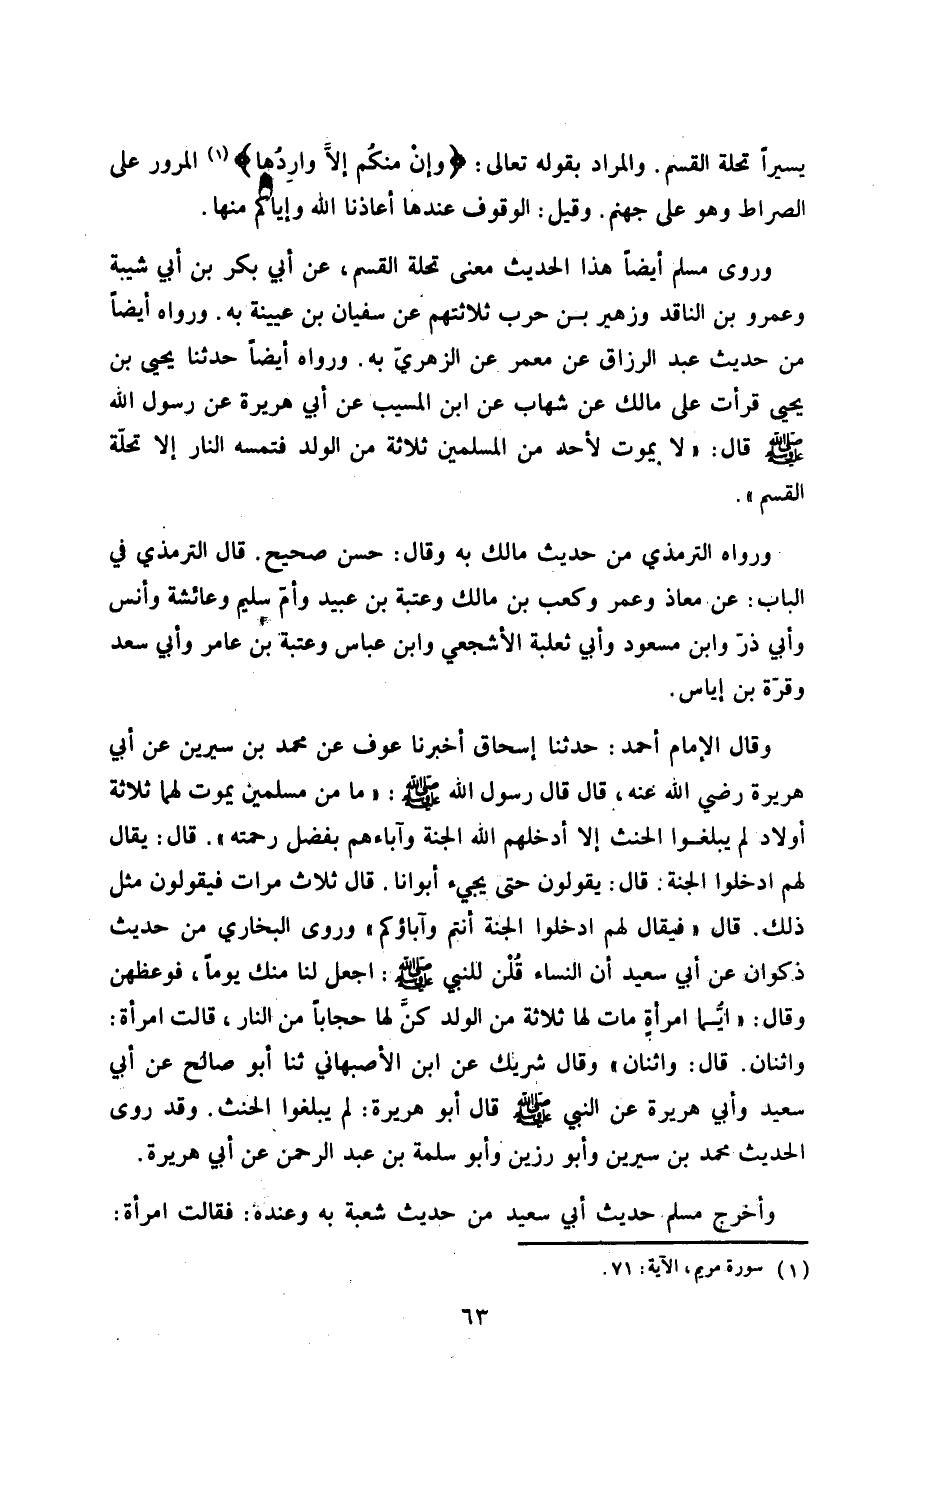 يسيراً تحلة القسم. والمراد بقوله تعالى: ﴿وإنْ منكُم إلاَّ وارِدُها﴾(١) المرور على
الصراط وهو على جهنم. وقيل: الوقوف عندها أعاذنا الله وإياكم منها.
وروى مسلم أيضاً هذا الحديث معنى تحلة القسم، عن أبي بكر بن أبي شيبة
وعمرو بن الناقد وزهير بن حرب ثلاثتهم عن سفيان بن عيينة به. ورواه أيضاً
من حديث عبد الرزاق عن معمر عن الزهريّ به. ورواه أيضاً حدثنا يحيى بن
يحيى قرأت على مالك عن شهاب عن ابن المسيب عن أبي هريرة عن رسول الله
ﷺ قال: « لا يموت لأحد من المسلمين ثلاثة من الولد فتمسه النار إلا تحلّة
القسم ».
ورواه الترمذي من حديث مالك به وقال: حسن صحيح. قال الترمذي في
الباب: عن معاذ وعمر وكعب بن مالك وعتبة بن عبيد وأمّ سليم وعائشة وأنس
وأبي ذرّ وابن مسعود وأبي ثعلبة الأشجعي وابن عباس وعتبة بن عامر وأبي سعد
وقرّة بن إياس.
وقال الإمام أحمد: حدثنا إسحاق أخبرنا عوف عن محمد بن سيرين عن أبي
هريرة رضي الله عنه، قال قال رسول الله ﷺ : « ما من مسلمين يموت لهما ثلاثة
أولاد لم يبلغوا الحنث إلا أدخلهم الله الجنة وآباءهم بفضل رحمته ». قال: يقال
لهم ادخلوا الجنة: قال: يقولون حتى يجيء أبوانا. قال ثلاث مرات فيقولون مثل
ذلك. قال « فيقال لهم ادخلوا الجنة أنتم وآباؤكم» وروى البخاري من حديث
ذكوان عن أبي سعيد أن النساء قُلْن للنبي ﷺ : اجعل لنا منك يوماً، فوعظهن
وقال: « ايُّما امرأةٍ مات لها ثلاثة من الولد كنَّ لها حجاباً من النار، قالت امرأة:
واثنان. قال: واثنان» وقال شريك عن ابن الأصبهاني ثنا أبو صالح عن أبي
سعيد وأبي هريرة عن النبي ﷺ قال أبو هريرة: لم يبلغوا الحنث. وقد روى
الحديث محمد بن سيرين وأبو رزين وأبو سلمة بن عبد الرحمن عن أبي هريرة.
وأخرج مسلم حديث أبي سعيد من حديث شعبة به وعنده: فقالت امرأة:
(١) سورة مريم، الآية: ٧١.
٦٣